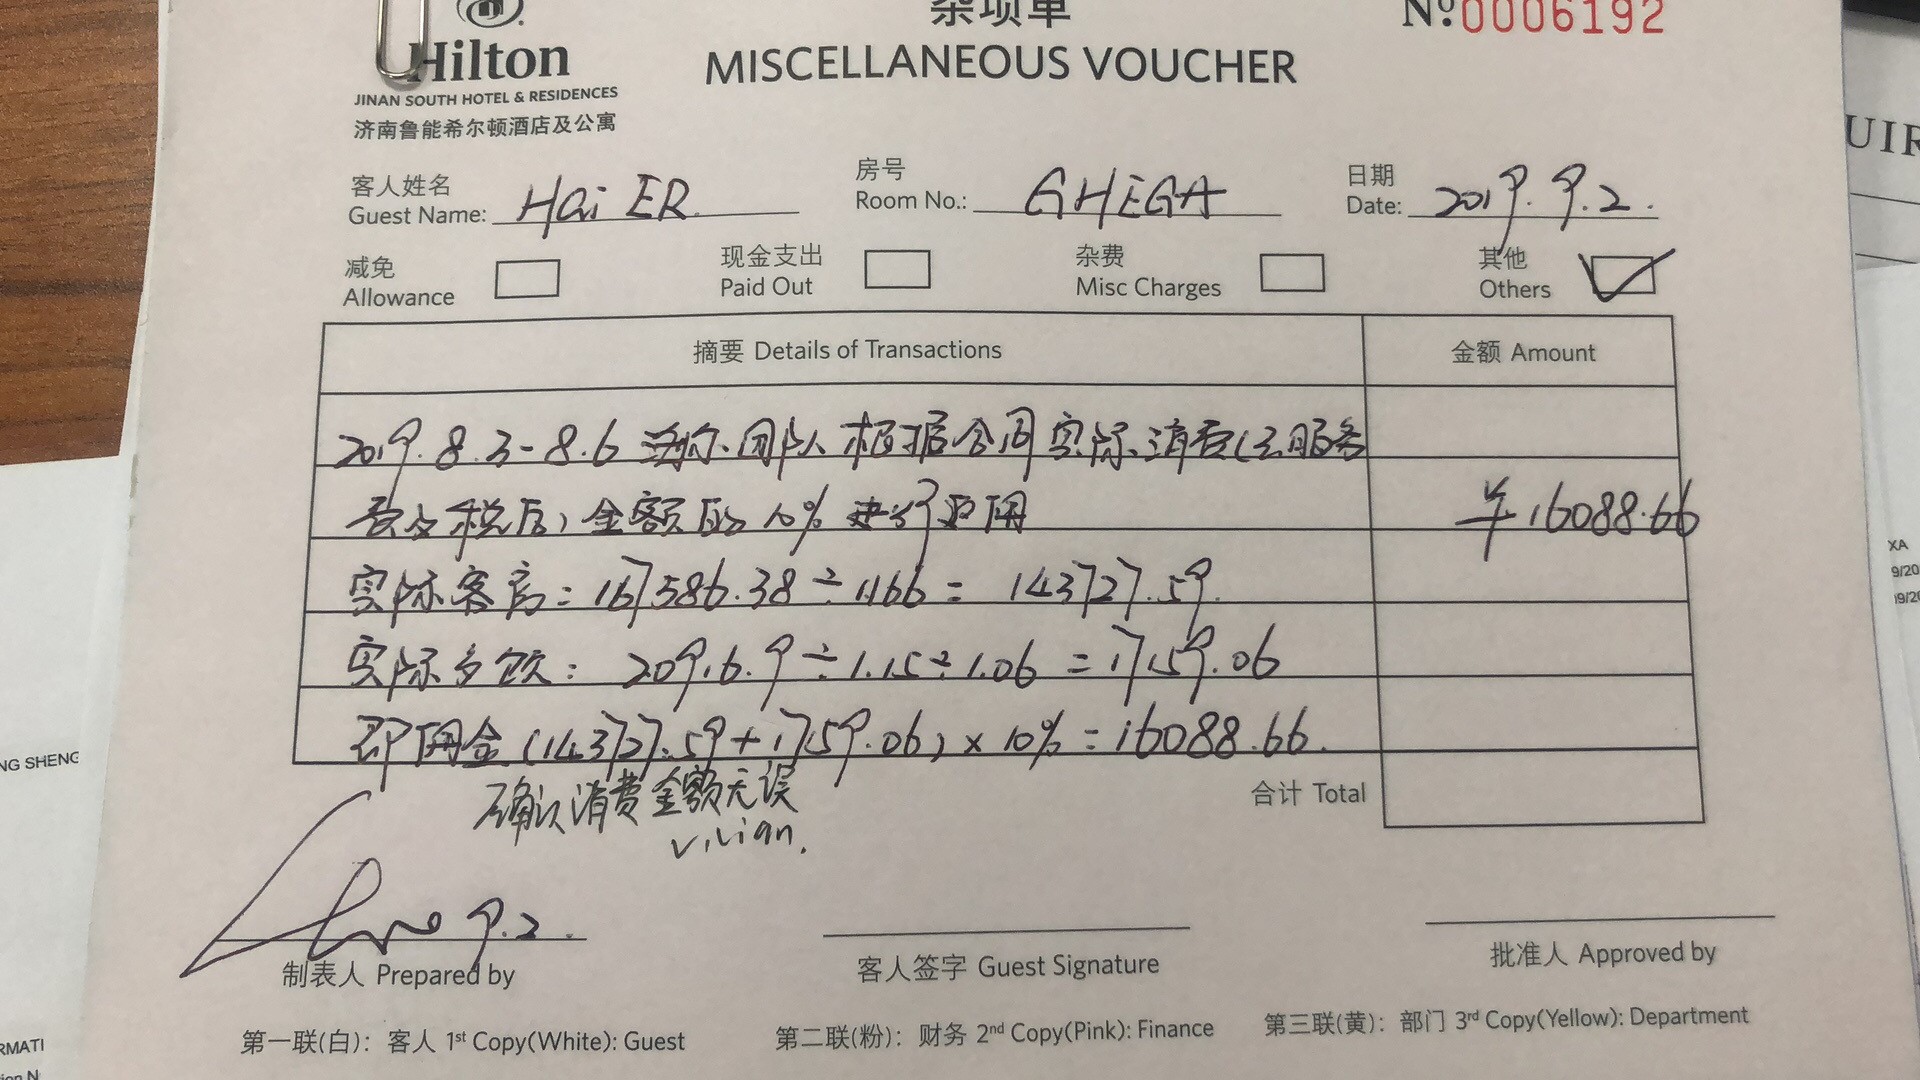 杂项单
MISCELLANEOUS VOUCHER
№:0006192
Hilton
JINAN SOUTH HOTEL & RESIDENCES
济南鲁能希尔顿酒店及公寓
客人姓名
Guest Name: Hai ER.
房号
Room No.: GHEGA
日期
Date: 2019.9.2.
减免
Allowance
现金支出
Paid Out
杂费
Misc Charges
其他
Others
摘要 Details of Transactions
金额 Amount
2019.8.3-8.6 海尔团队根据合同实际消费(去服务
费及税后)金额的10%进行返佣
¥16088.66
实际客房: 167586.38÷1.166= 143727.59.
实际多饮: 2091.6.9÷1.15÷1.06=17159.06
即佣金(143727.59+17159.06)×10%=16088.66.
合计 Total
确认消费金额无误
Vivian.
9.2.
制表人 Prepared by
客人签字 Guest Signature
批准人 Approved by
第一联(白): 客人 1st Copy(White): Guest
第二联(粉): 财务 2nd Copy(Pink): Finance
第三联(黄): 部门 3rd Copy(Yellow): Department
UIR
XA
9/20
9/20
NG SHENG
RMATI
ion N